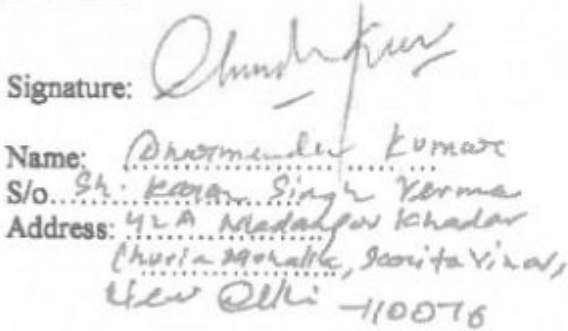 Signature:
Name: Dharmender Kumar
S/o Sh. Karan Singh Verma
Address: 42A Madanpur Khadar
Mohalla, Sarita Vihar,
New Delhi -110076